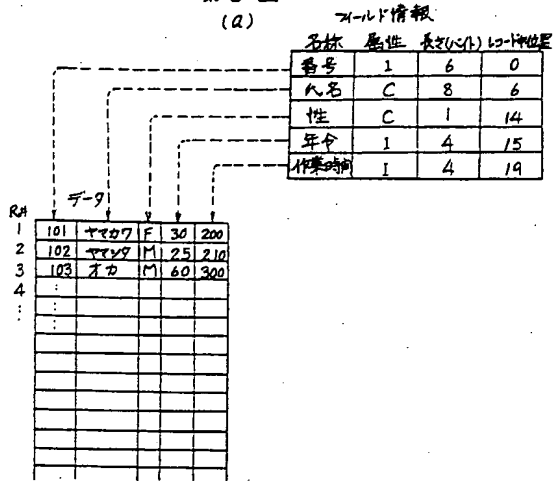 (a)
フィールド情報
名称 属性 長さ(バイト) レコード中位置
番号 I 6 0
氏名 C 8 6
性 C 1 14
年令 I 4 15
作業時間 I 4 19
データ
R#
1 101 ヤマカワ F 30 200
2 102 ヤマシタ M 25 210
3 103 オカ M 60 300
4 :
: :